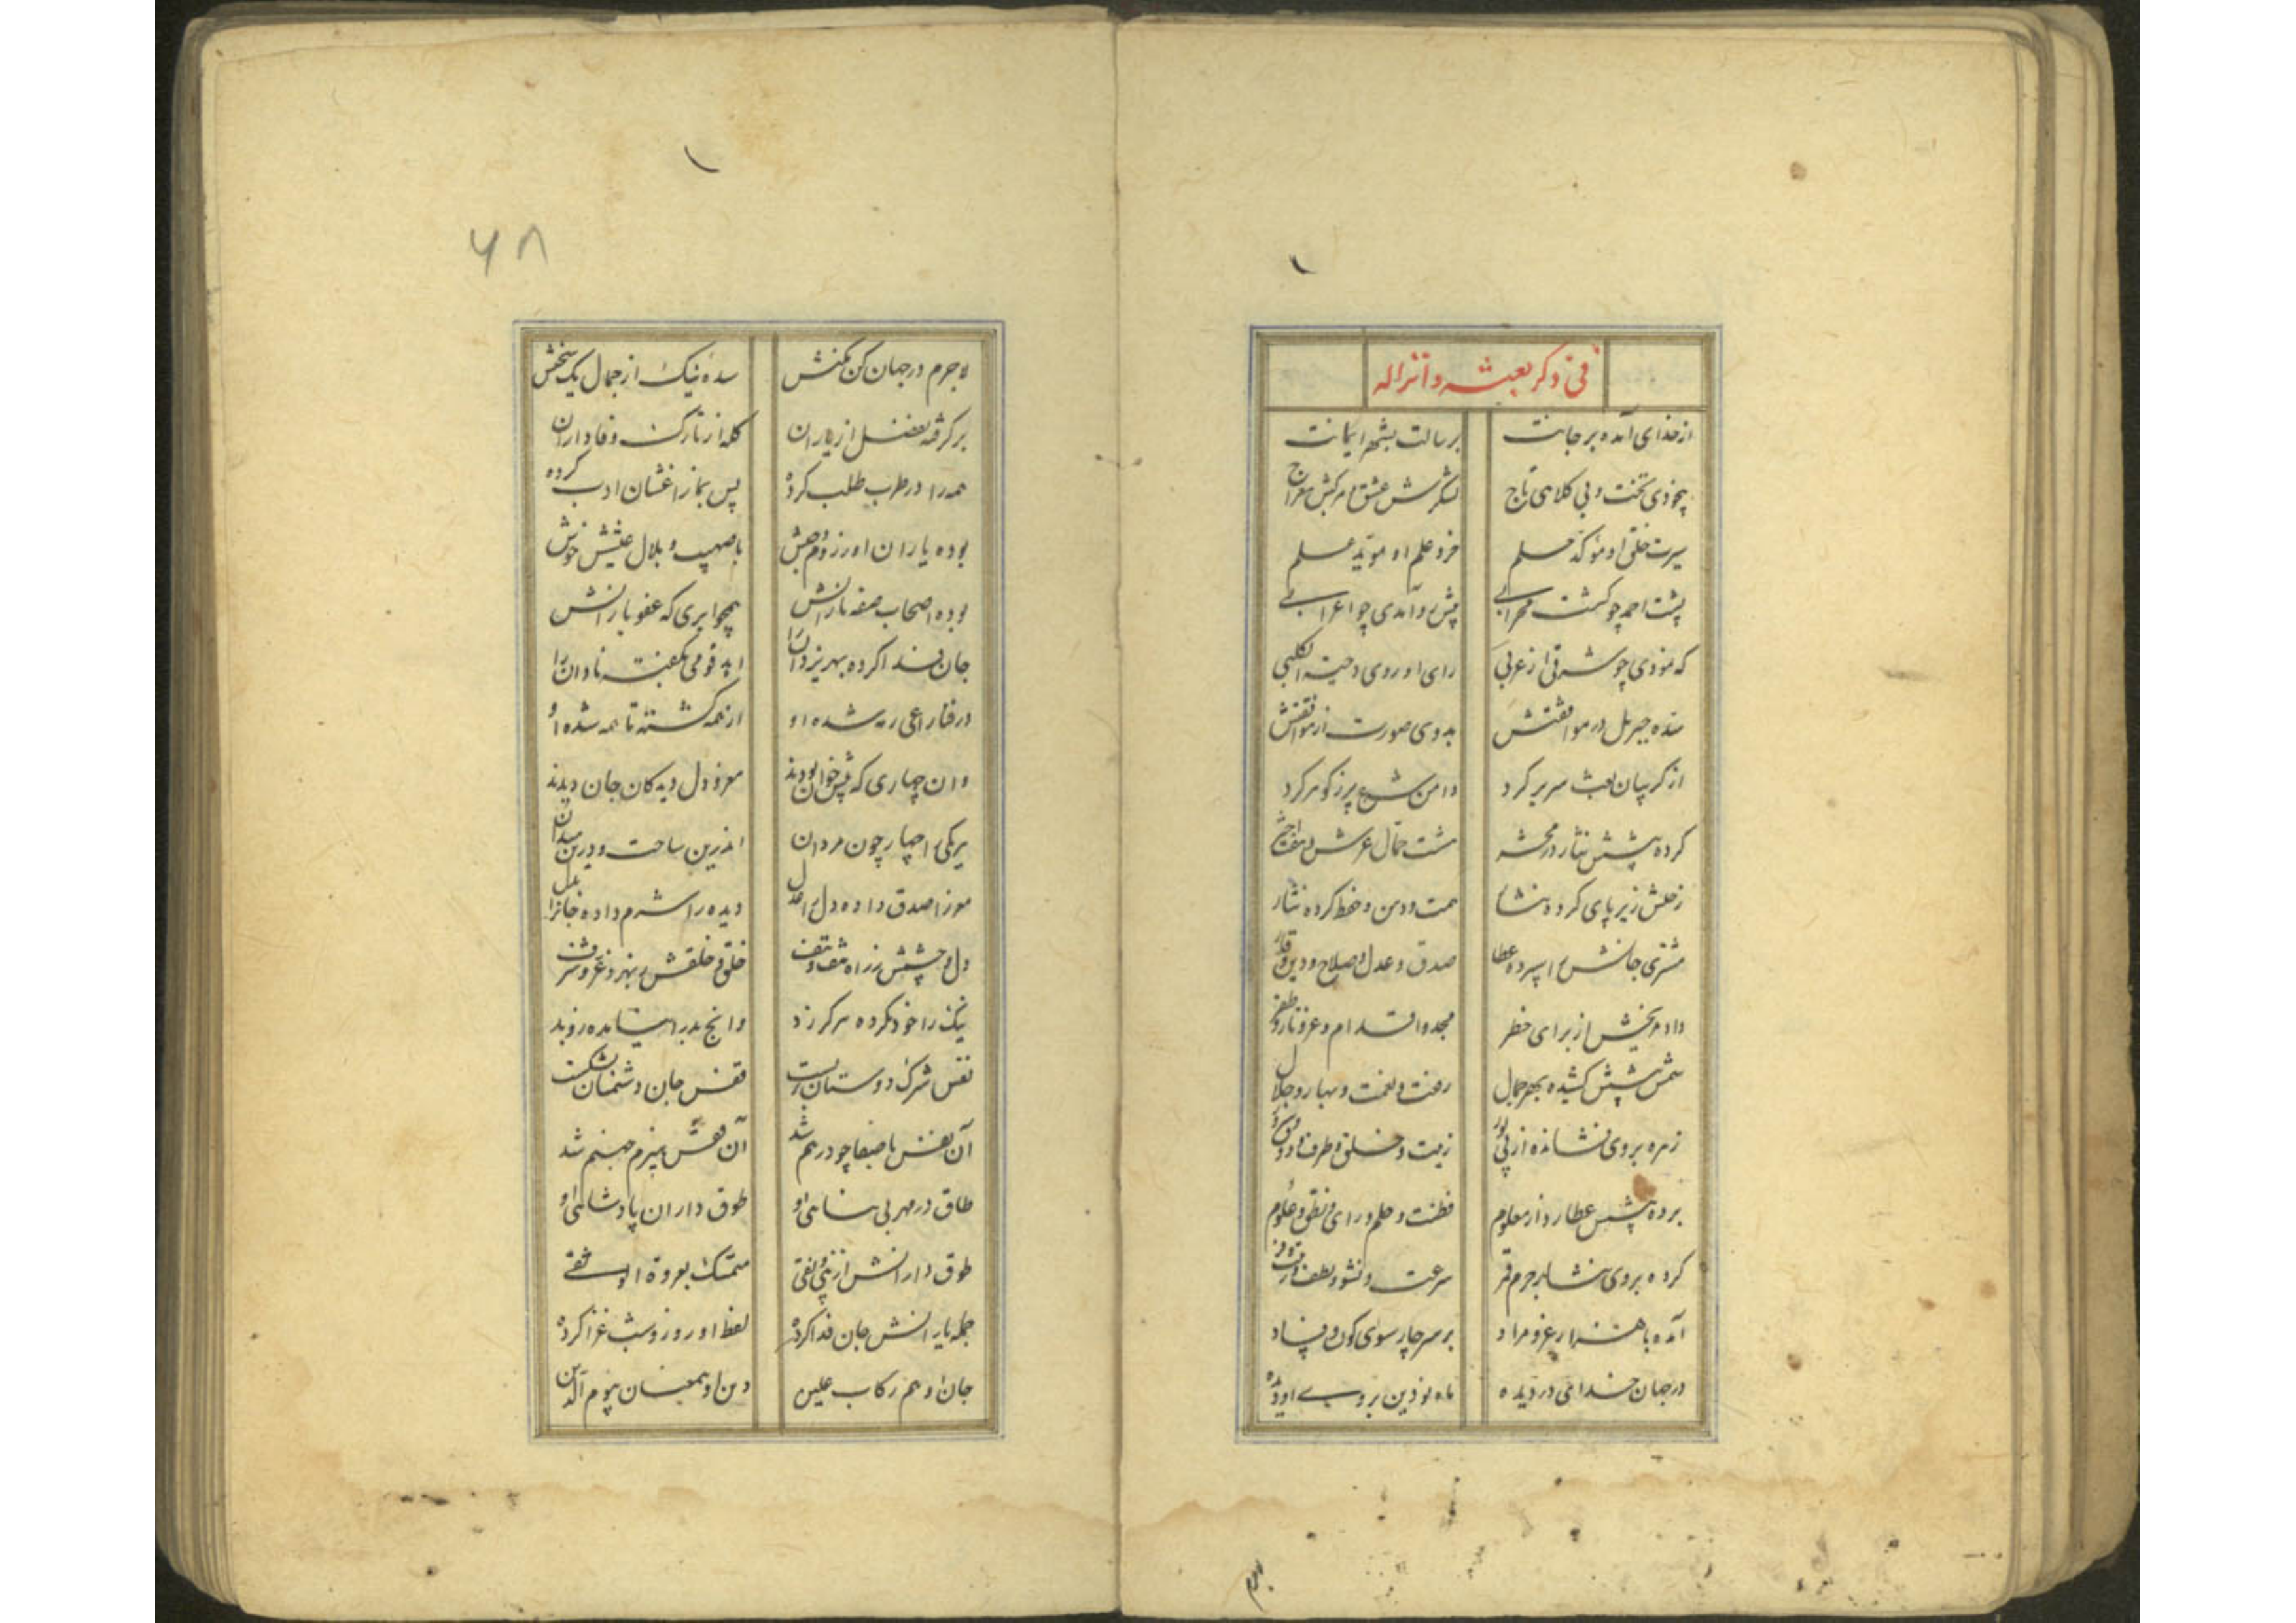 فی ذکر بعثه و انزاله
از خدای آمده بر جانت برسالت بشهر ایمانت
بیخودی تخت و بی کلاهی تاج لشکرش عشق و مرکبش معراج
سیرت خلق او مؤکد حلم خرد و علم او مؤید علم
پشت احمد چو گشت محرابی پیش او آمدی چو اعرابی
که نمودی چو شرقی از غربی رای او روی دحیة الکلبی
شده جبریل در موافقتش بدوی صورت از موافقتش
از گریبان بعث سر بر کرد دامن شرع پر ز گوهر کرد
کرده پیشش نثار در محشر هشت حمال عرش و هفت اختر
زحلش زیر پای کرده نثار همت و دمن و حفظ کرده نثار
مشتری جانش را سپرده عطا صدق و عدل و صلاح و دین و وقار
داده مریخش از برای خطر مجد و اقدام و عز و نار و ظفر
شمس پیشش کشیده بهر جمال رفعت و نعمت و بها و جلال
زهره بر وی فشانده از پی زینت و خلق و طرف و ذوق
برده پیشش عطارد از معلوم فطنت و حلم و رای و نطق و علوم
کرده بر وی نثار جرم قمر سرعت و نشو و لطف
آمده با هزار عز و مراد بر سر چار سوی کون و فساد
در جهان خدامی در دیده ماه نو دین بروی او دیده
۶۸
لاجرم در جهان کن مکنش سده نیک از جمال یک سخنش
برگرفته بفضل از یاران کله از تارک وفاداران
همه را در طرب طلب کرده پس بمازاغشان ادب کرده
بوده یاران او ز روم و حبش با صهیب و بلال عیشش خوش
بوده اصحاب صفه یارانش همچو ابری که عفو بارانش
جان فدا کرده بهر یزدان را اهد قومی بگفته نادان را
در فنار اعجی رمه شده او از همه گشته تا همه شده او
وان چهاری که پیش خوان بودند مغز و دل دیدگان جان دیدند
هر یکی را چهار چون مردان اندرین ساحت و درین میدان
مغز را صدق داده دل را عدل دیده را شرم داده جانرا بذل
دل و چشمش ز راه شق و شغف خلق و خلقش بهر دو عز و شرف
نیک را خود نکرده هرگز رد وانچ بد بد را نشانده ز وبد
نفس شرک دوستان بست قفس جان دشمنان بشکست
آن نفس با صفا چو درهم شد آن نفس هیزم جهنم شد
طاق در مهر بی پناهی او طوق داران پادشاهی او
طوق دارانش از پی و نفتی متمسک بعروة الوثقی
جمله یارانش جان فدا کرده لفظ او روز و شب غزا کرده
جان او هم رکاب علیین دین او همعنان یوم الدین